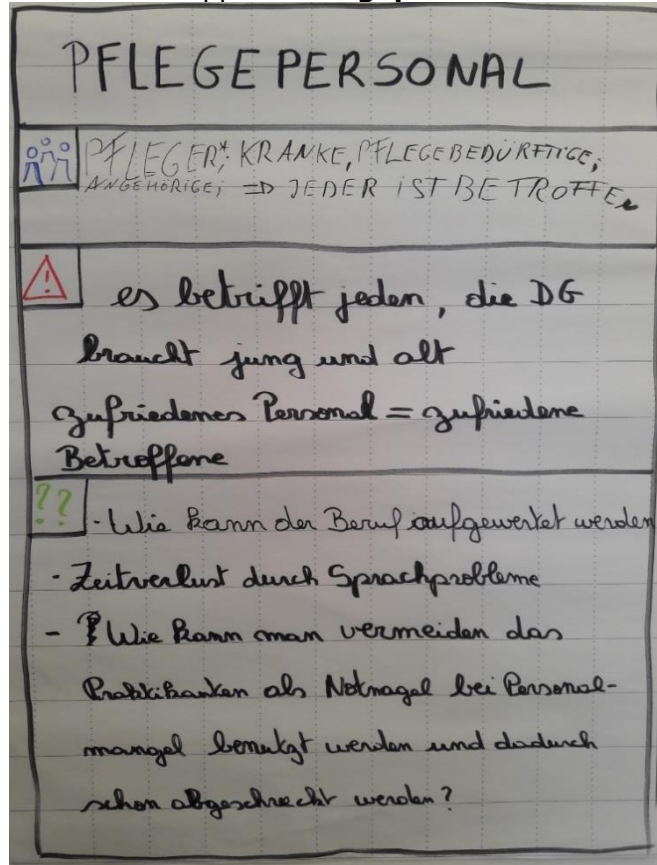 PFLEGEPERSONAL
PFLEGER*, KRANKE, PFLEGEBEDÜRFTIGE,
ANGEHÖRIGE, => JEDER IST BETROFFEN
es betrifft jeden, die DG
braucht jung und alt
zufriedenes Personal = zufriedene
Betroffene
?? - Wie kann der Beruf aufgewertet werden
- Zeitverlust durch Sprachprobleme
- Wie kann man vermeiden das
Praktikanten als Notnagel bei Personal-
mangel benutzt werden und dadurch
schon abgeschreckt werden?